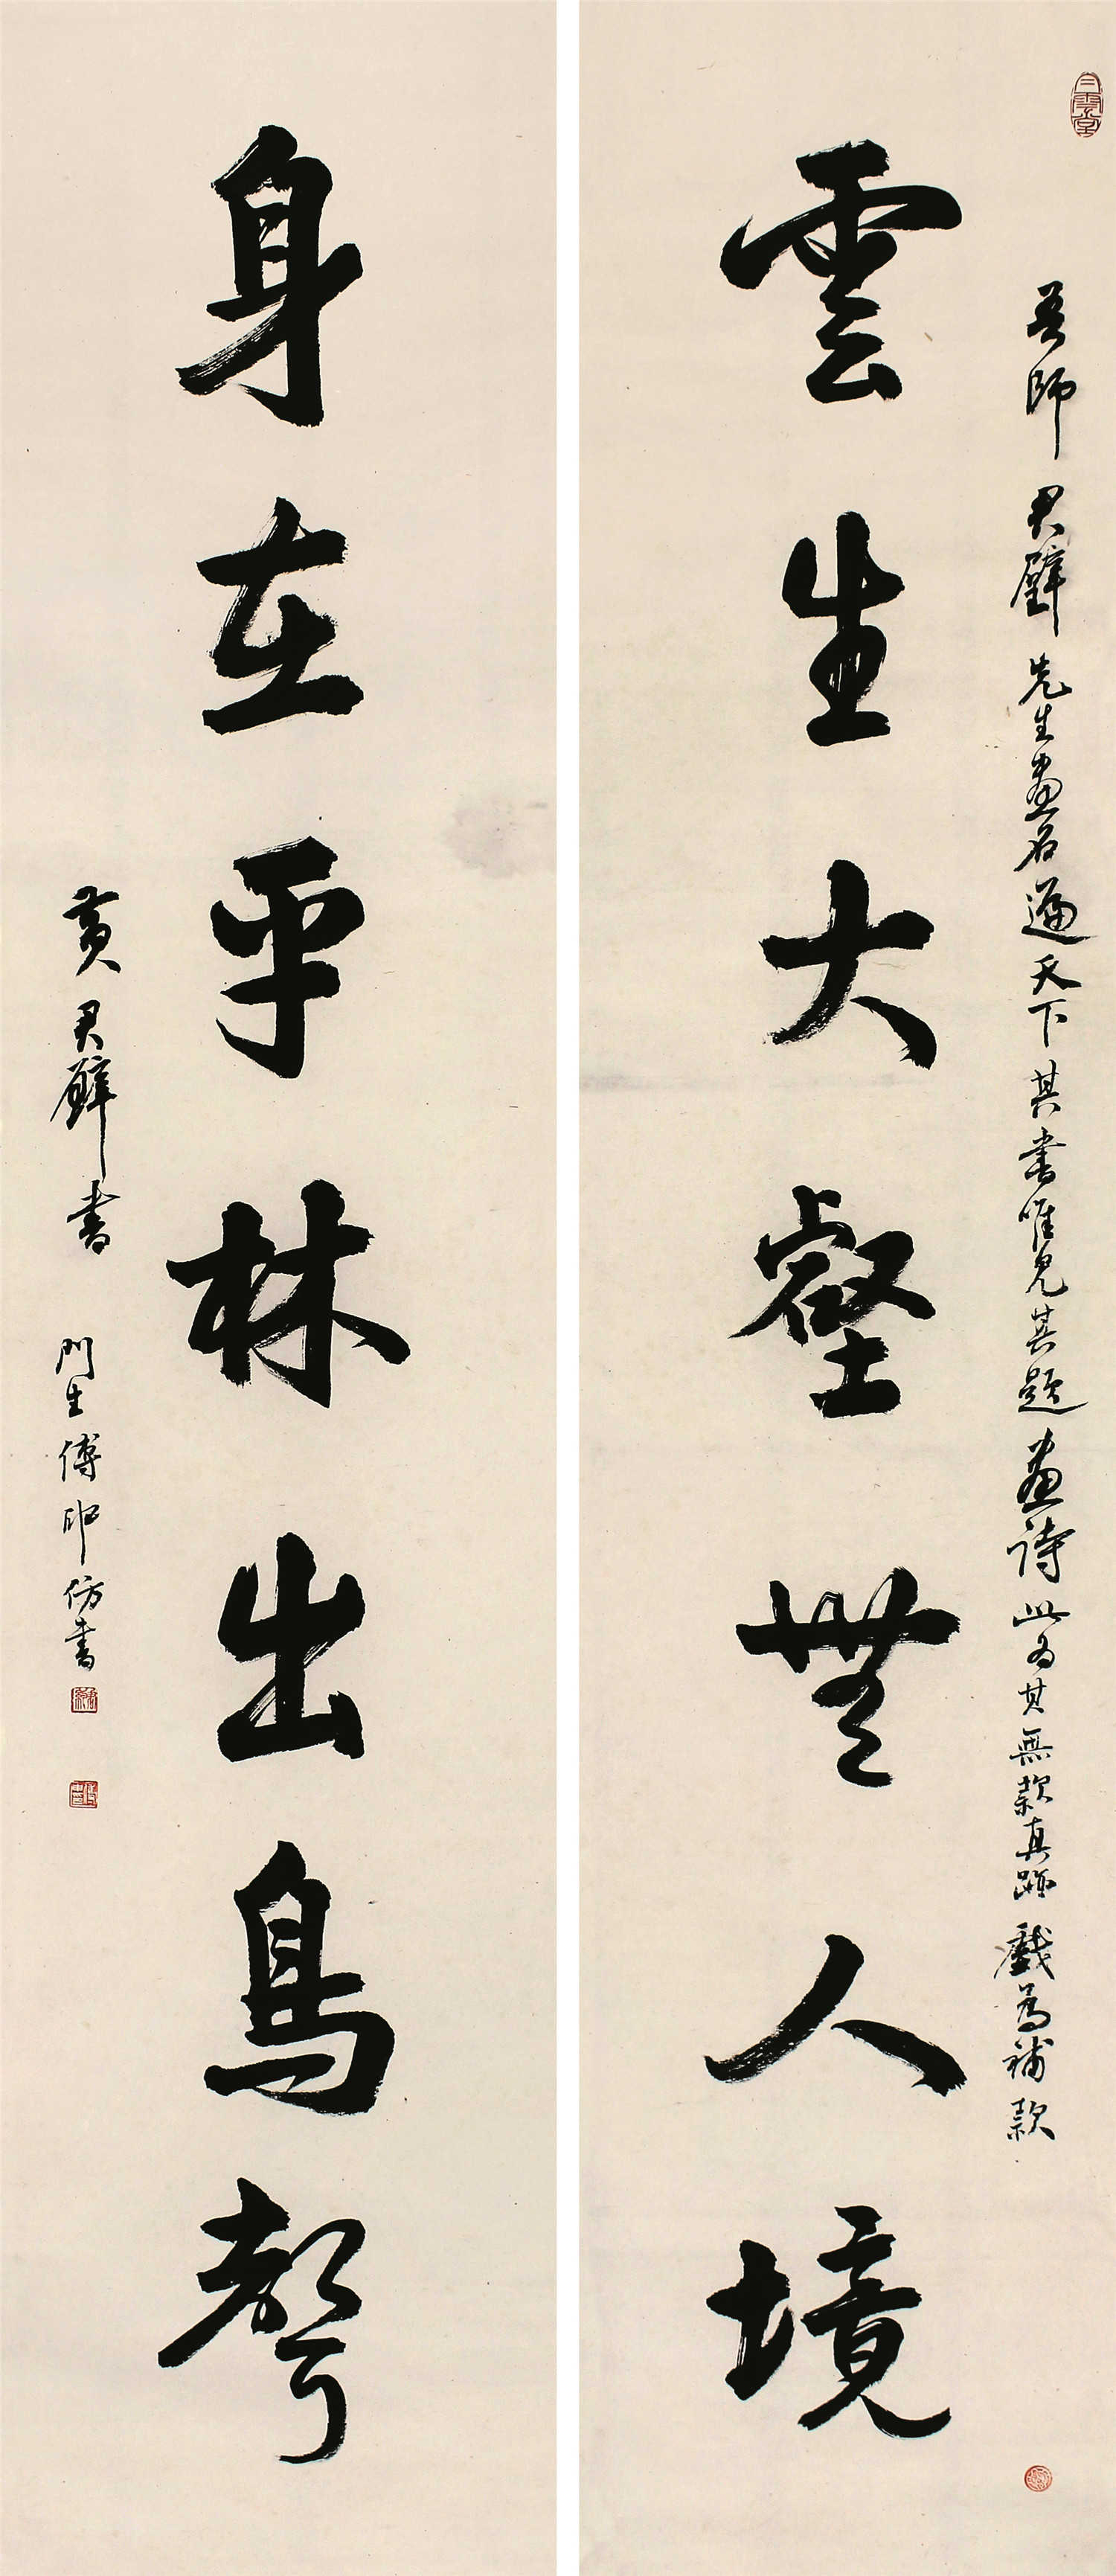 吾師君璧先生畫名遍天下其書唯見其題畫詩此為其無款真跡戲為補款
雲生大壑無人境
身在平林出鳥聲
黃君璧書
門生傅申仿書
白雲堂